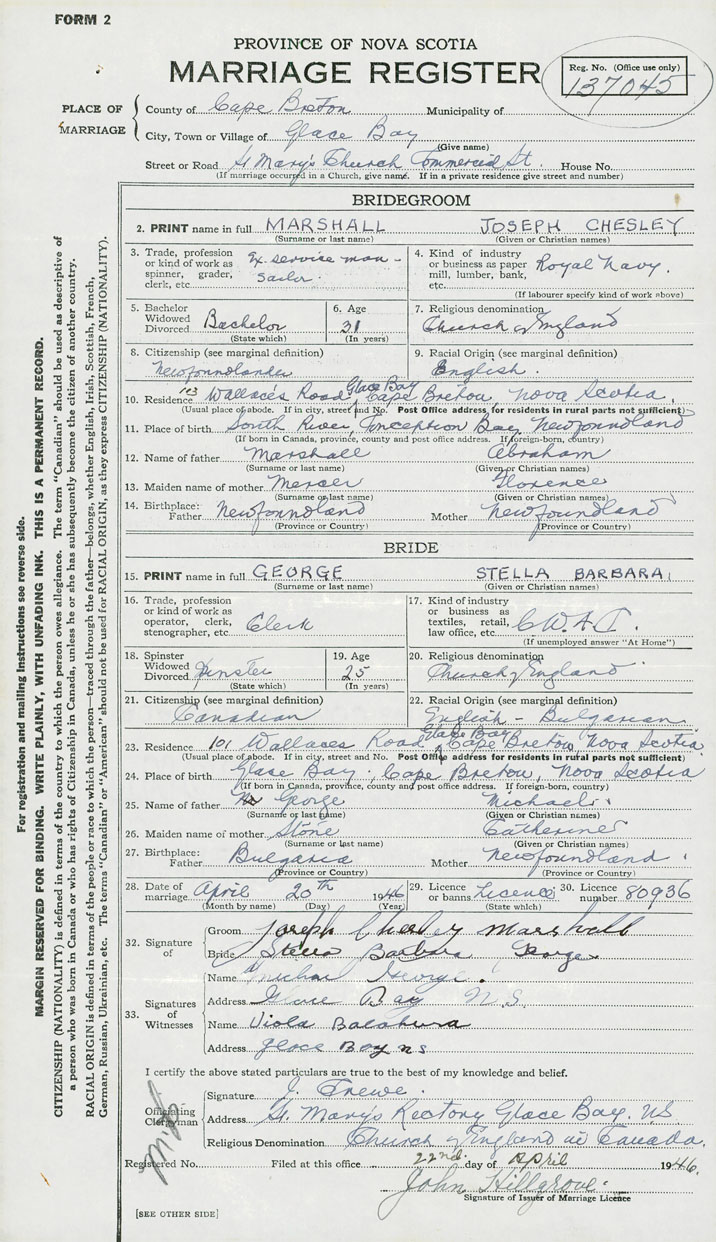 FORM 2
PROVINCE OF NOVA SCOTIA
MARRIAGE REGISTER
Reg. No. (Office use only)
137045
PLACE OF MARRIAGE
County of Cape Breton Municipality of
City, Town or Village of Glace Bay
(Give name)
Street or Road St Mary's Church Commercial St. House No.
(If marriage occurred in a Church, give name. If in a private residence give street and number)
BRIDEGROOM
2. PRINT name in full MARSHALL JOSEPH CHESLEY
(Surname or last name) (Given or Christian names)
3. Trade, profession or kind of work as spinner, grader, clerk, etc. Ex. service man - Sailor.
4. Kind of industry or business as paper mill, lumber, bank, etc. Royal Navy.
(If labourer specify kind of work above)
5. Bachelor Widowed Divorced Bachelor
(State which)
6. Age 31
(In years)
7. Religious denomination
Church of England
8. Citizenship (see marginal definition)
Newfoundlander
9. Racial Origin (see marginal definition)
English.
10. Residence 103 Wallace's Road, Glace Bay Cape Breton, Nova Scotia,
(Usual place of abode. If in city, street and No. Post Office address for residents in rural parts not sufficient)
11. Place of birth South River, Conception Bay, Newfoundland
(If born in Canada, province, county and post office address. If foreign-born, country)
12. Name of father Marshall Abraham
(Surname or last name) (Given or Christian names)
13. Maiden name of mother Mercer Florence
(Surname or last name) (Given or Christian names)
14. Birthplace: Father Newfoundland Mother Newfoundland
(Province or Country) (Province or Country)
BRIDE
15. PRINT name in full GEORGE STELLA BARBARA
(Surname or last name) (Given or Christian names)
16. Trade, profession or kind of work as operator, clerk, stenographer, etc. Clerk
17. Kind of industry or business as textiles, retail, law office, etc. C.W.A.C.
(If unemployed answer "At Home")
18. Spinster Widowed Divorced Spinster
(State which)
19. Age 25
(In years)
20. Religious denomination
Church of England
21. Citizenship (see marginal definition)
Canadian
22. Racial Origin (see marginal definition)
English - Bulgarian
23. Residence 101 Wallaces Road, Glace Bay Cape Breton, Nova Scotia
(Usual place of abode. If in city, street and No. Post Office address for residents in rural parts not sufficient)
24. Place of birth Glace Bay, Cape Breton, Nova Scotia
(If born in Canada, province, county and post office address. If foreign-born, country)
25. Name of father George Michael
(Surname or last name) (Given or Christian names)
26. Maiden name of mother Stone Catherine
(Surname or last name) (Given or Christian names)
27. Birthplace: Father Bulgaria Mother Newfoundland
(Province or Country) (Province or Country)
28. Date of marriage April 20th 1946
(Month by name) (Day) (Year)
29. Licence or banns Licence
(State which)
30. Licence number 80936
32. Signature of
Groom Joseph Chesley Marshall
Bride Stella Barbara George
33. Signatures of Witnesses
Name Michael George.
Address Glace Bay N.S.
Name Viola Balahura
Address Glace Bay ns
I certify the above stated particulars are true to the best of my knowledge and belief.
Officiating Clergyman
Signature J. Crewe.
Address St. Mary's Rectory Glace Bay, NS
Religious Denomination Church of England in Canada.
Registered No. Filed at this office 22nd. day of April 1946.
John Hillgrove
Signature of Issuer of Marriage Licence
[SEE OTHER SIDE]
For registration and mailing instructions see reverse side.
MARGIN RESERVED FOR BINDING. WRITE PLAINLY, WITH UNFADING INK. THIS IS A PERMANENT RECORD.
CITIZENSHIP (NATIONALITY) is defined in terms of the country to which the person owes allegiance. The term "Canadian" should be used as descriptive of
a person who was born in Canada or who has rights of Citizenship in Canada, unless he or she has subsequently become the citizen of another country.
RACIAL ORIGIN is defined in terms of the people or race to which the person—traced through the father—belongs, whether English, Irish, Scottish, French,
German, Russian, Ukrainian, etc. The terms "Canadian" or "American" should not be used for RACIAL ORIGIN, as they express CITIZENSHIP (NATIONALITY).